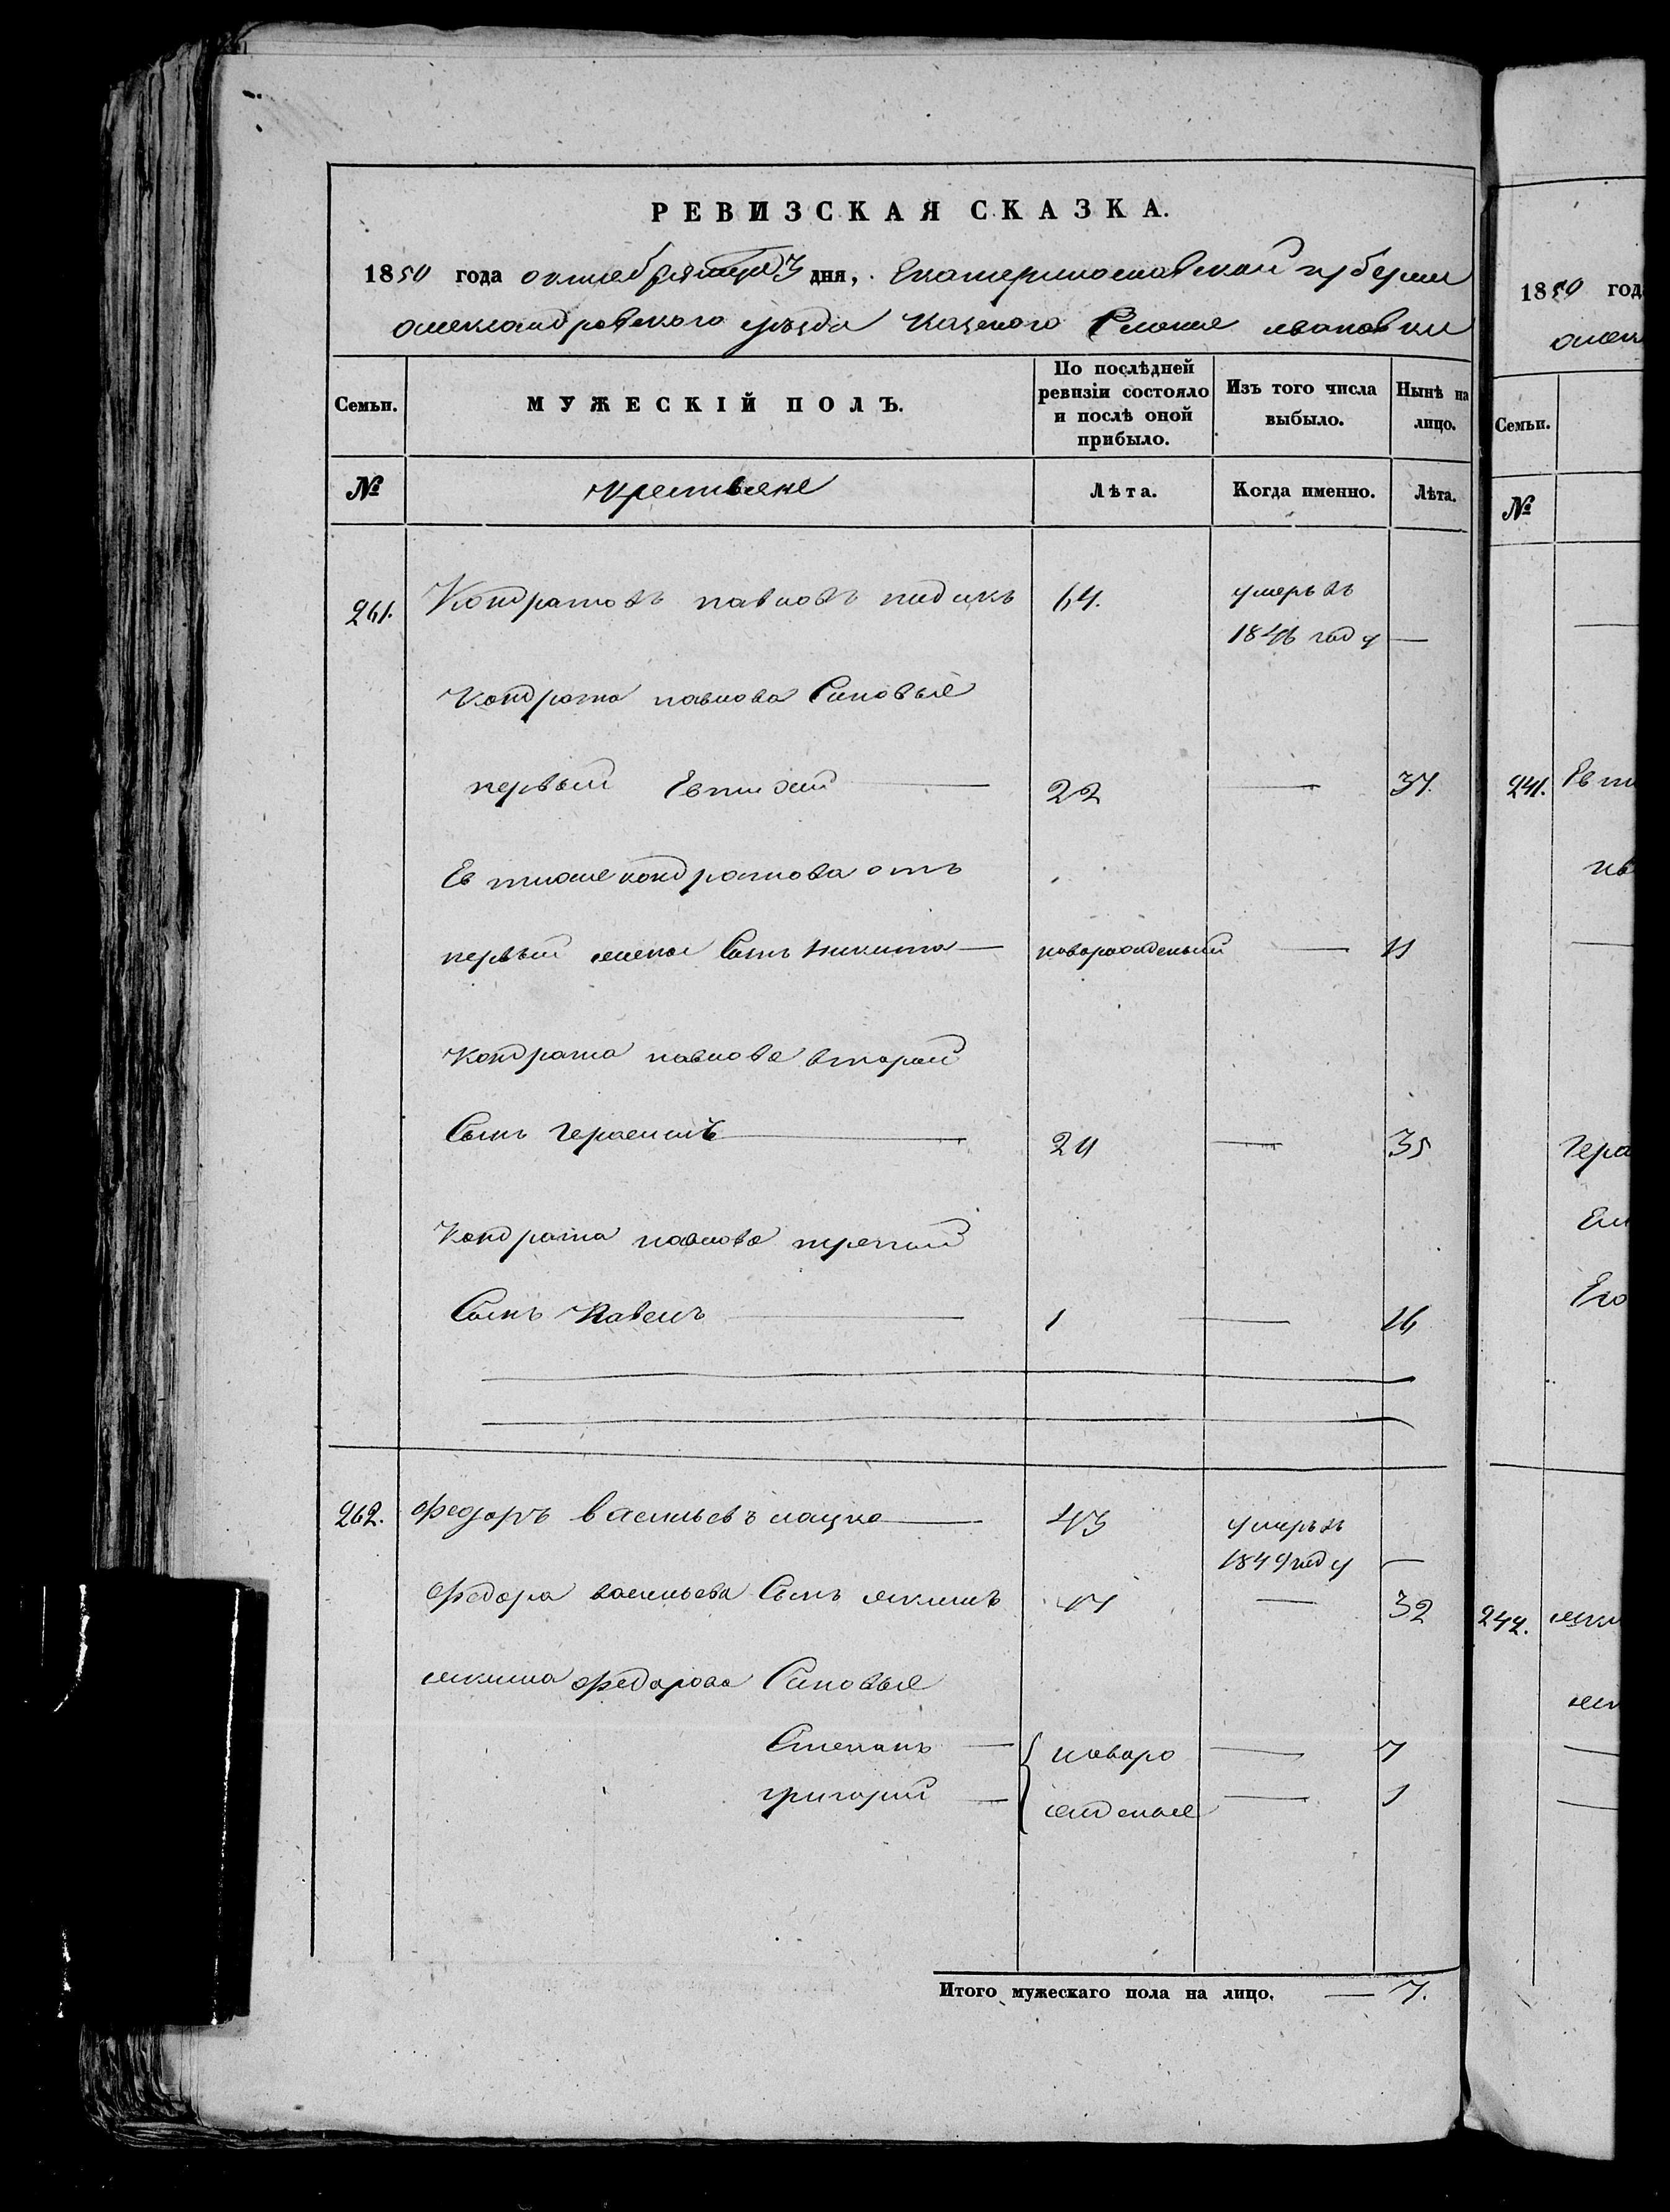 РЕВИЗСКАЯ СКАЗКА.
1850 года октября месяца 3 дня, Екатеринославской губернии
александровского уезда Казеного Селение ивановки
Семьи.
МУЖЕСКІЙ ПОЛЪ.
По послѣдней ревизіи состояло и послѣ оной прибыло.
Изъ того числа выбыло.
Нынѣ на лицо.
№ крестьяне Лѣта. Когда именно. Лѣта.
261. Кондратовъ павловъ 64. умеръ въ
1846 году —
Кондрата павлова Сыновья
первый Евтихий — 22 — 37.
Евтихие кондратова отъ
первый жены Сынъ Никита — новорожденый — 11
Кондрата павлова второй
Сынъ Герасимъ — 20 — 35
Кондрата павлова третий
Сынъ Павелъ — 1 — 16
262. Федоръ васильевъ — 43 умеръ въ
1849 году —
Федора васильева Сынъ якимъ 17 — 32
якима Федорова Сыновья
Степанъ — новоро — 7
григорий — жденые — 1
Итого мужескаго пола на лицо. — 7.
1850 год
Семьи.
№
241. Евти
Гера
242.